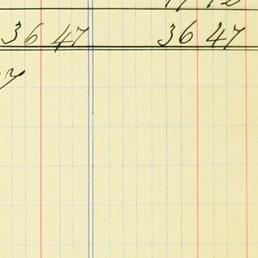 36 47 36 47